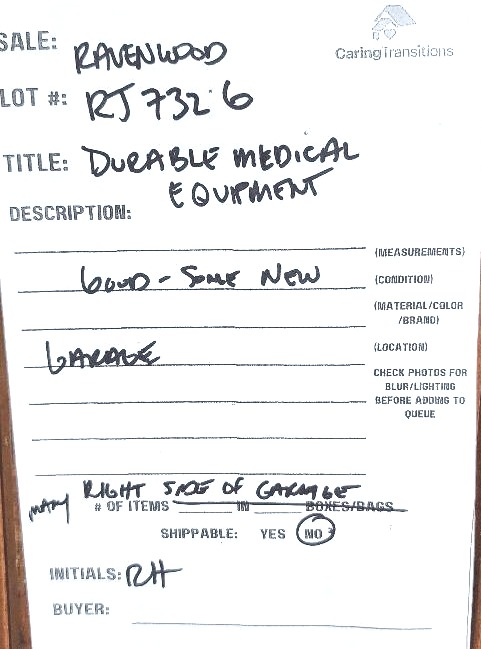 SALE: RAVENWOOD
CaringTransitions
LOT #: RJ 732 6
TITLE: DURABLE MEDICAL
EQUIPMENT
DESCRIPTION:
(MEASUREMENTS)
GOOD - SOME NEW (CONDITION)
(MATERIAL/COLOR
/BRAND)
GARAGE (LOCATION)
CHECK PHOTOS FOR
BLUR/LIGHTING
BEFORE ADDING TO
QUEUE
RIGHT SIDE OF GARAGE
MANY # OF ITEMS IN BOXES/BAGS
SHIPPABLE: YES NO
INITIALS: RH
BUYER: